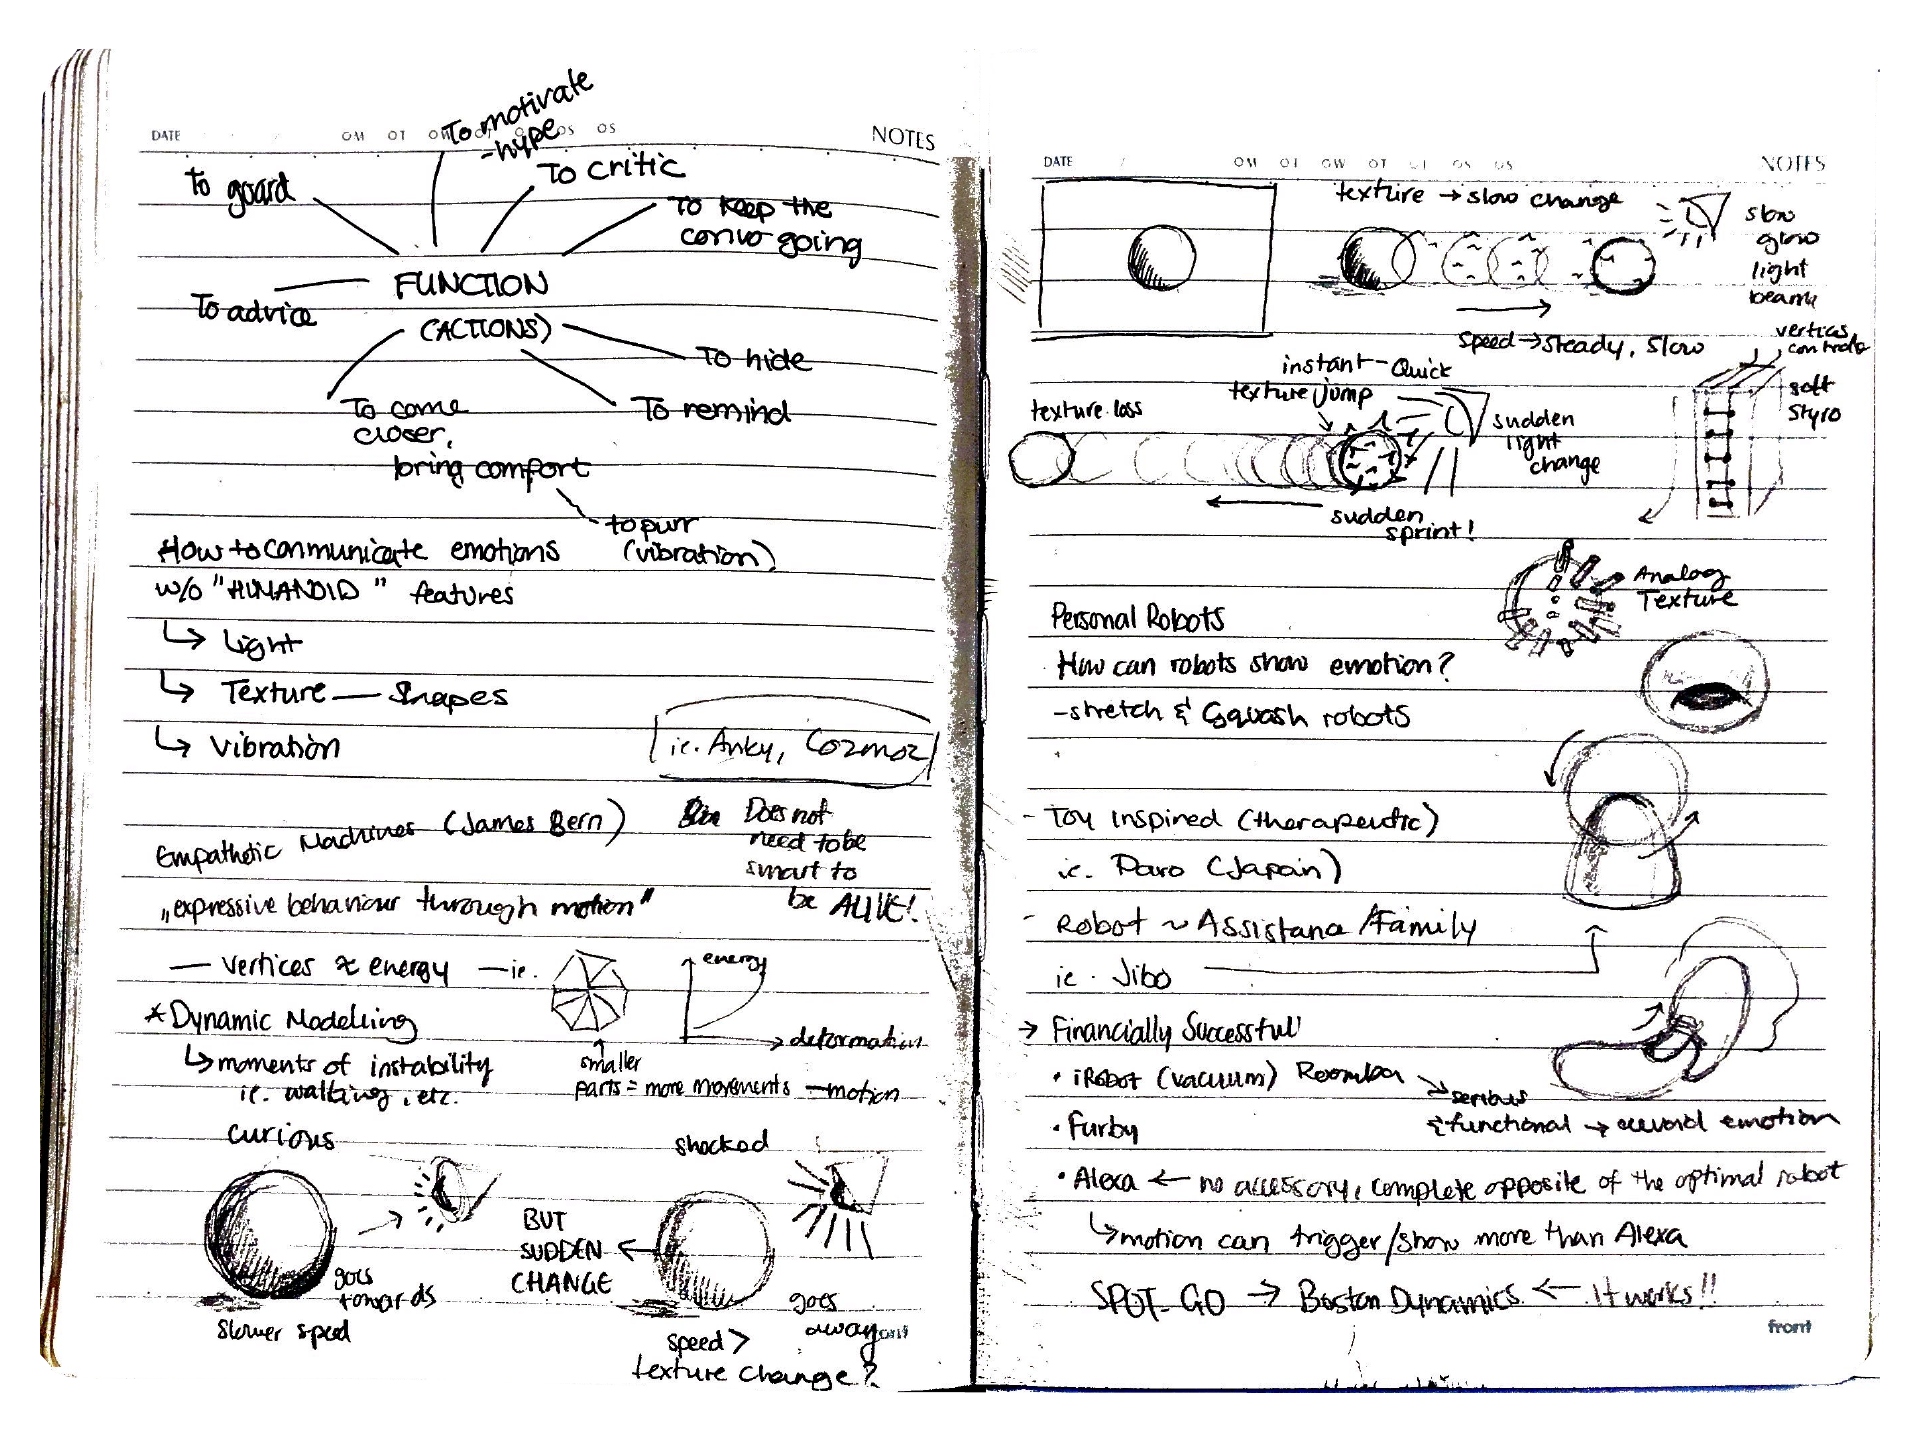 DATE
NOTES
To motivate
-hype
To critic
To guard
To keep the
convo going
FUNCTION
(ACTIONS)
To advice
To hide
To come
closer,
bring comfort
To remind
to purr
(vibration)
How to communicate emotions
w/o "HUMANOID" features
↳ Light
↳ Texture — Shapes
↳ Vibration
ie. Anky, Cozmoz
Empathetic Machines (James Bern)
Does not
need to be
smart to
be ALIVE!
„expressive behaviour through motion"
— vertices ≈ energy — ie.
energy
deformation
* Dynamic Modelling
↳ moments of instability
ie. walking, etc.
smaller
parts = more movements — motion
curious
goes
towards
slower speed
BUT
SUDDEN
CHANGE
shocked
goes
away
speed >
texture change?
front
DATE
NOTES
texture → slow change
slow
glow
light
beam
speed → steady, slow
vertices
controls
soft
styro
instant - Quick
texture jump
texture loss
sudden
light
change
sudden
sprint!
Analog
Texture
Personal Robots
How can robots show emotion?
- stretch & Squash robots
- Toy Inspired (therapeutic)
ie. Paro (Japain)
- Robot ~ Assistana / Family
ie. Jibo
→ Financially Successful
• iRobot (vacuum) Roomba
serious
& functional → emotion
• Furby
• Alexa ← no accessory, complete opposite of the optimal robot
↳ motion can trigger/show more than Alexa
SPOT-GO → Boston Dynamics ← It works!!
front